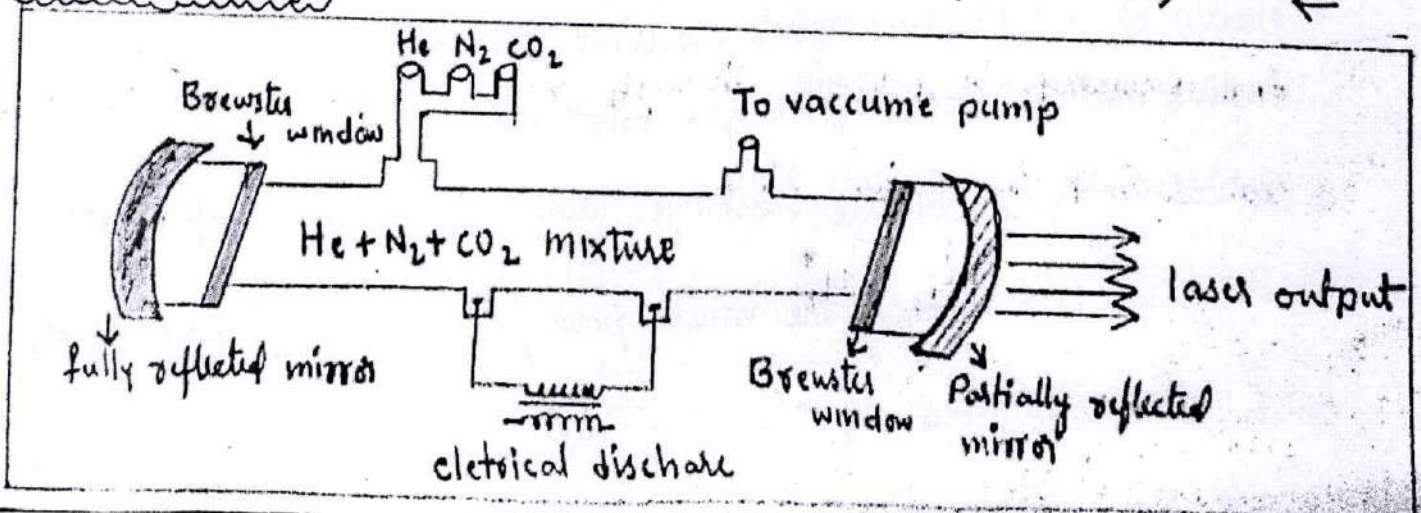 He N₂ CO₂
Brewster
window
To vaccume pump
He + N₂ + CO₂ mixture
laser output
fully reflected mirror
Brewster
window
Partially reflected
mirror
eletrical dischare